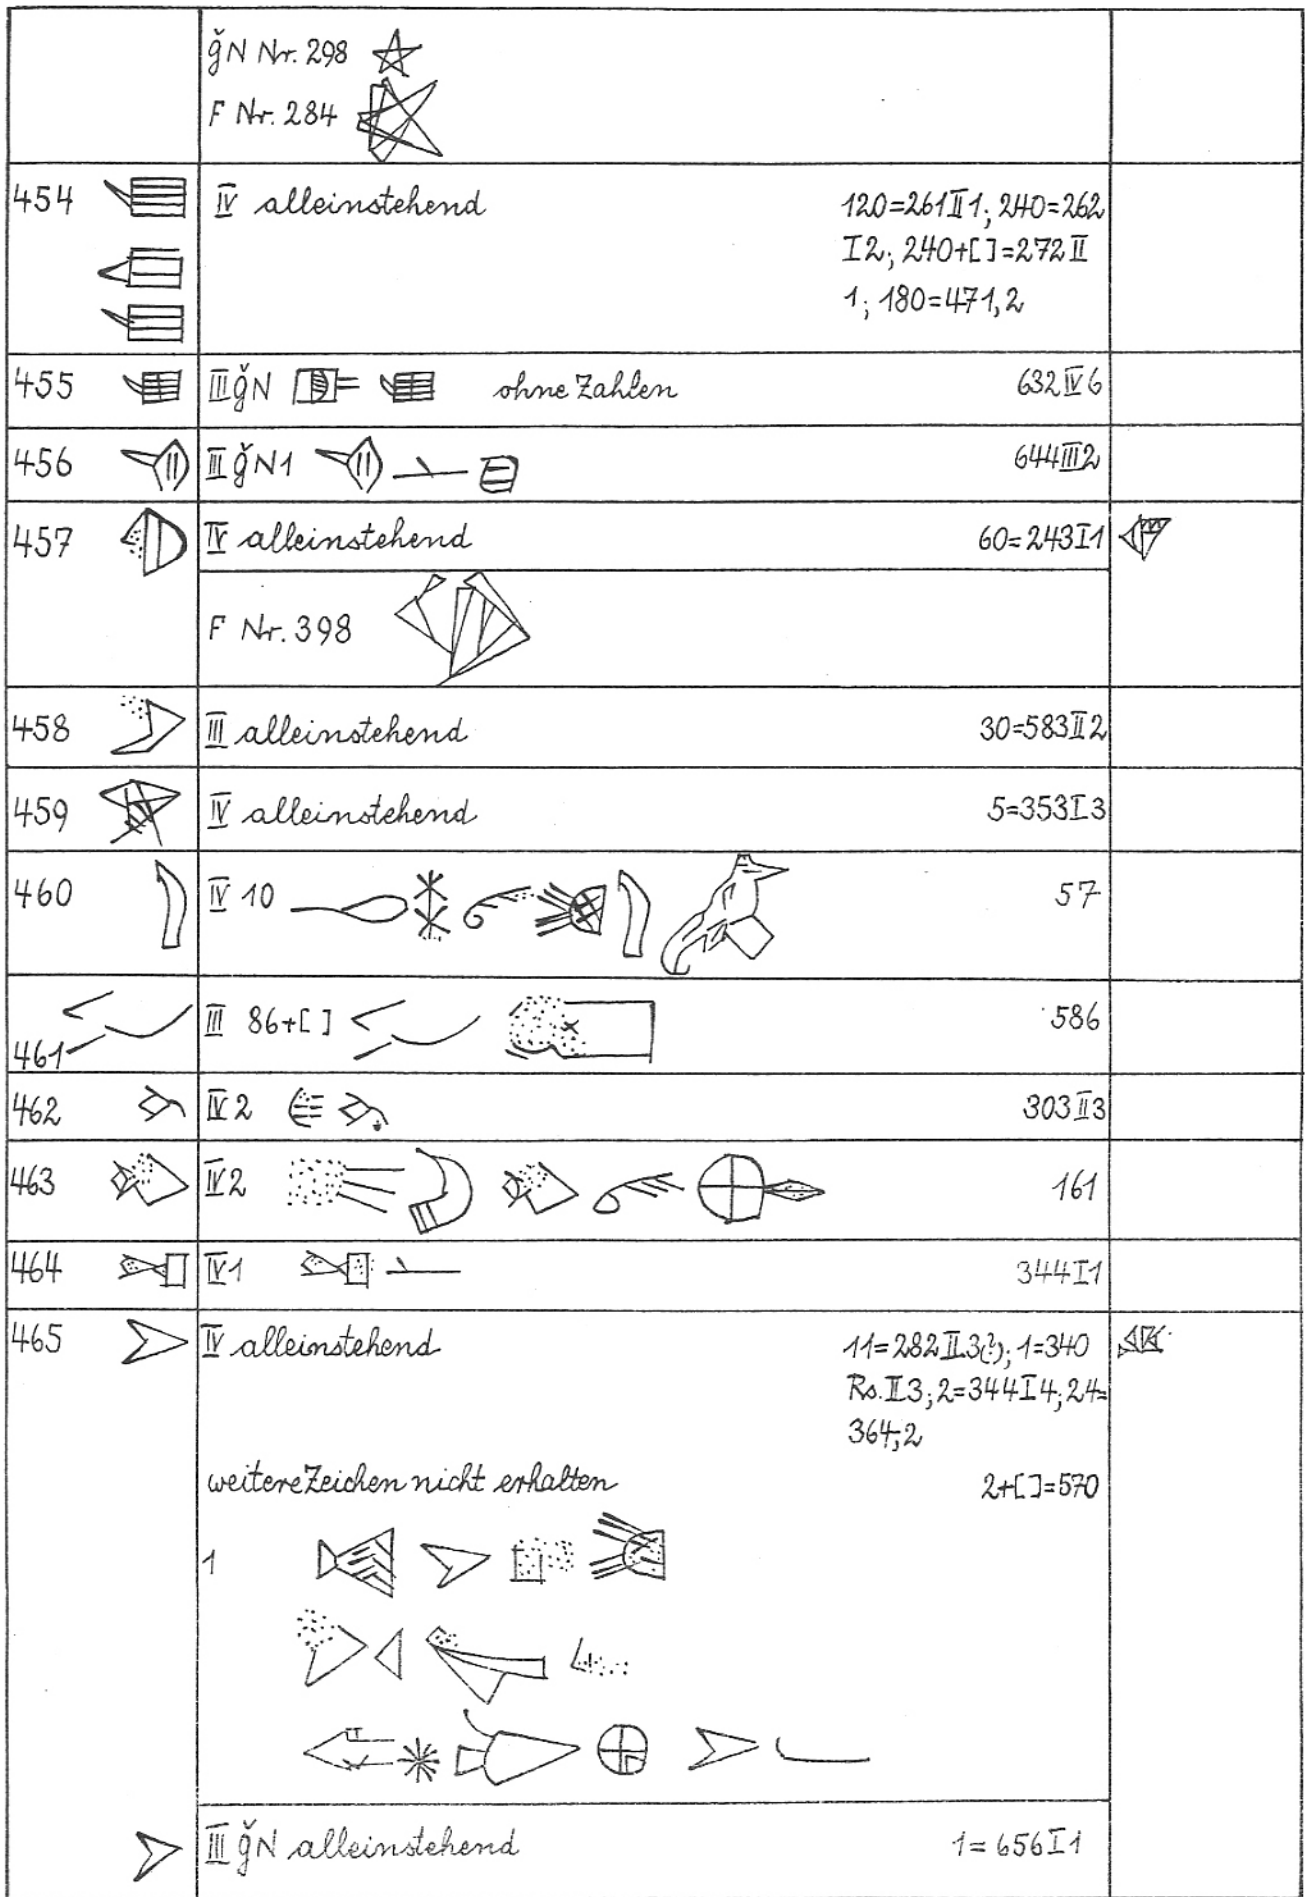 ǧN Nr. 298
F Nr. 284
454 IV alleinstehend 120=261II1; 240=262
I2; 240+[ ]=272II
1; 180=471,2
455 III ǧN ohne Zahlen 632IV6
456 III ǧN1 644III2
457 IV alleinstehend 60=243I1
F Nr. 398
458 III alleinstehend 30=583II2
459 IV alleinstehend 5=353I3
460 IV 10 57
461 III 86+[ ] 586
462 IV 2 303II3
463 IV 2 161
464 IV 1 344I1
465 IV alleinstehend 11=282II3(?); 1=340
Rs. II3; 2=344I4; 24=
364,2
weitere Zeichen nicht erhalten 2+[ ]=570
1
III ǧN alleinstehend 1=656I1